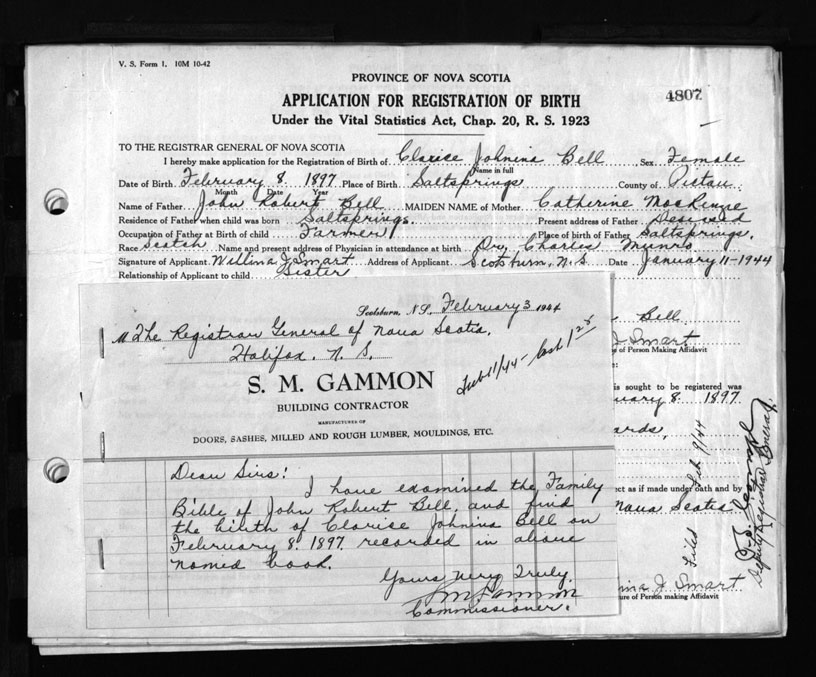 V. S. Form 1. 10M 10-42
PROVINCE OF NOVA SCOTIA
4807
APPLICATION FOR REGISTRATION OF BIRTH
Under the Vital Statistics Act, Chap. 20, R. S. 1923
TO THE REGISTRAR GENERAL OF NOVA SCOTIA
I hereby make application for the Registration of Birth of Clarise Johnina Bell Sex Female
Name in full
Date of Birth February 8. 1897 Place of Birth Saltsprings County of Pictou
Month Date Year
Name of Father John Robert Bell MAIDEN NAME of Mother Catherine MacKenzie
Residence of Father when child was born Saltsprings. Present address of Father
Occupation of Father at Birth of child Farmer Place of birth of Father Saltsprings.
Race Scotch Name and present address of Physician in attendance at birth Dr. Charles Munro
Signature of Applicant Willina J Smart Address of Applicant Scotsburn, N.S Date January 11-1944
Relationship of Applicant to child Sister
Scotsburn, N.S. February 3 1944
M The Registrar General of Nova Scotia.
Halifax. N. S.
Feb 11/44 - Cash 1.25
S. M. GAMMON
BUILDING CONTRACTOR
MANUFACTURER OF
DOORS, SASHES, MILLED AND ROUGH LUMBER, MOULDINGS, ETC.
Dear Sirs!
I have examined the Family
Bible of John Robert Bell, and find
the birth of Clarise Johnina Bell on
February 8. 1897. recorded in above
named book.
Yours Very Truly.
S M Gammon
Commissioner.
Bell
J Smart
of Person Making Affidavit
TO:
is sought to be registered was
uary 8. 1897
ards,
ect as if made under oath and by
Nova Scotia
Filed Feb 9/44
Deputy Registrar General.
ina J Smart
ure of Person making Affidavit